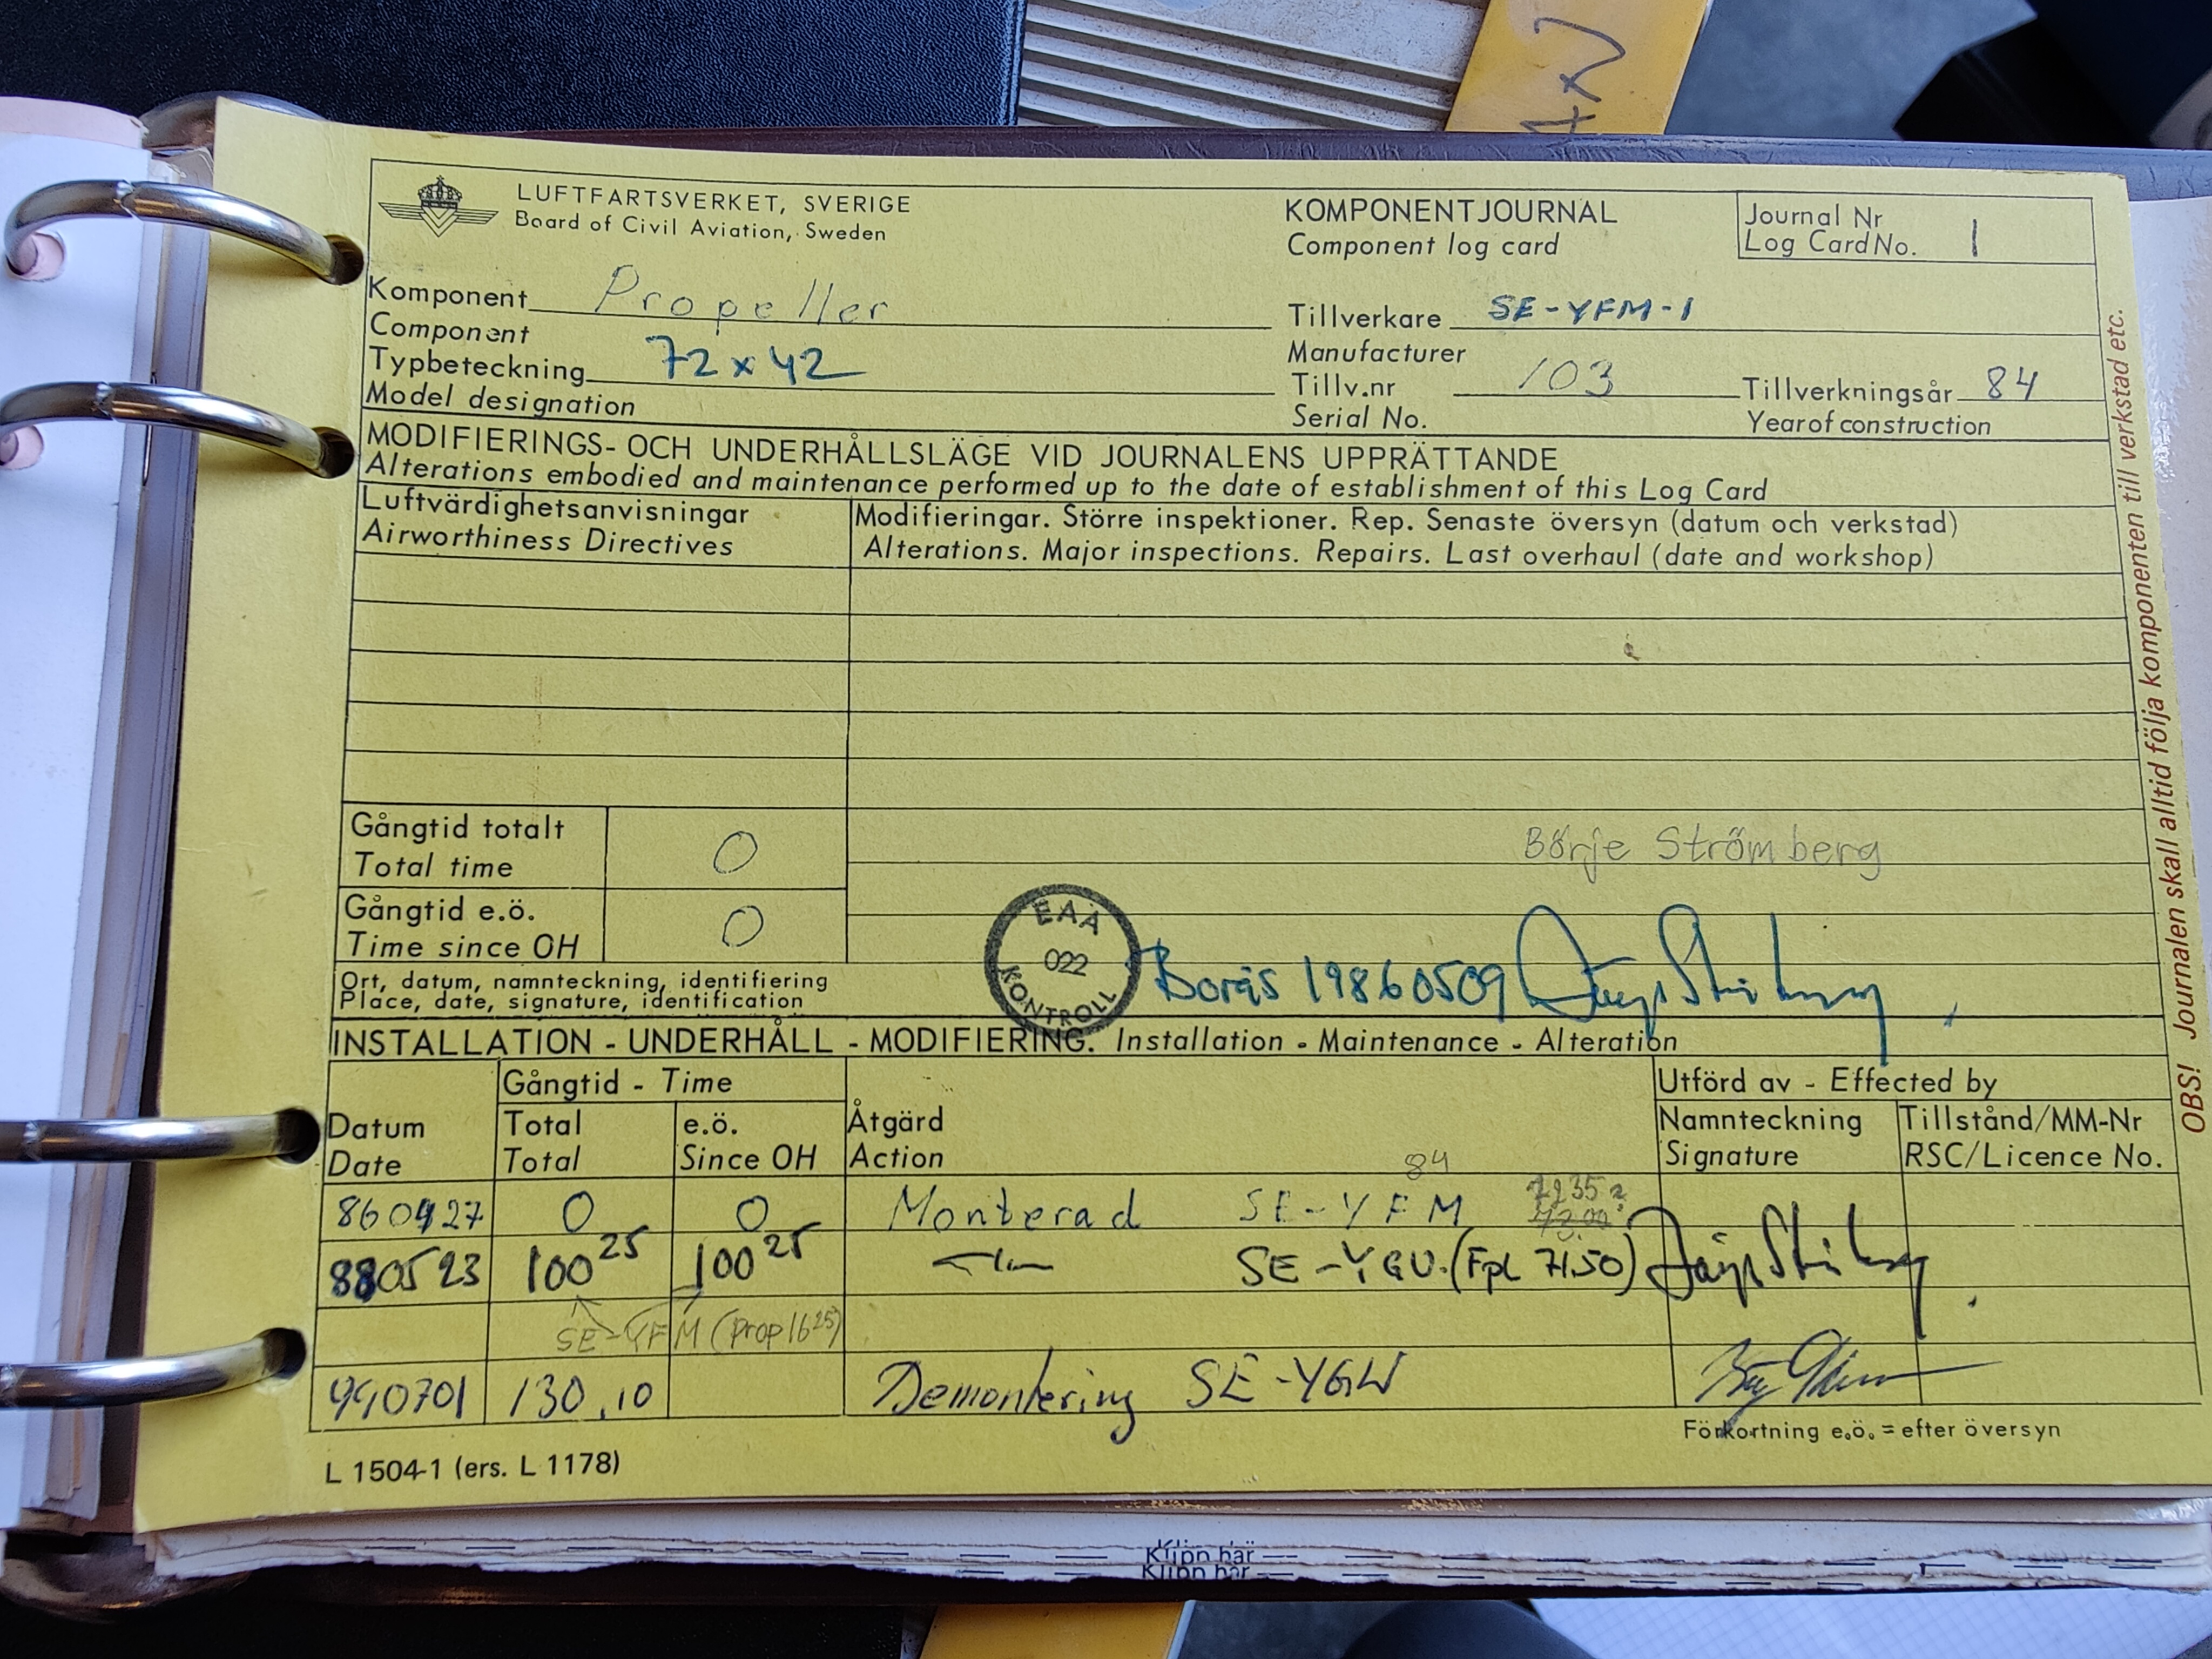 LUFTFARTSVERKET, SVERIGE
Board of Civil Aviation, Sweden
KOMPONENTJOURNAL
Component log card
Journal Nr
Log Card No. 1
Komponent Propeller
Component
Tillverkare SE-YFM-1
Manufacturer
Typbeteckning 72 x 42
Model designation
Tillv.nr 103
Serial No.
Tillverkningsår 84
Year of construction
MODIFIERINGS- OCH UNDERHÅLLSLÄGE VID JOURNALENS UPPRÄTTANDE
Alterations embodied and maintenance performed up to the date of establishment of this Log Card
Luftvärdighetsanvisningar
Airworthiness Directives
Modifieringar. Större inspektioner. Rep. Senaste översyn (datum och verkstad)
Alterations. Major inspections. Repairs. Last overhaul (date and workshop)
Gångtid totalt
Total time
0
Gångtid e.ö.
Time since OH
0
Börje Strömberg
EAA
022
KONTROLL
Borås 19860509
Ort, datum, namnteckning, identifiering
Place, date, signature, identification
INSTALLATION - UNDERHÅLL - MODIFIERING. Installation - Maintenance - Alteration
Datum
Date
Gångtid - Time
Total
Total
e.ö.
Since OH
Åtgärd
Action
Utförd av - Effected by
Namnteckning
Signature
Tillstånd/MM-Nr
RSC/Licence No.
84
860427 0 0 Monterad SE-YFM
880523 100 25 100 25 SE-YGU. (Fpl 71.50)
SE-YFM (prop 16 25)
990701 130.10 Demontering SE-YGW
Förkortning e.ö. = efter översyn
L 1504-1 (ers. L 1178)
OBS! Journalen skall alltid följa komponenten till verkstad etc.
Klipp här
Klipp här